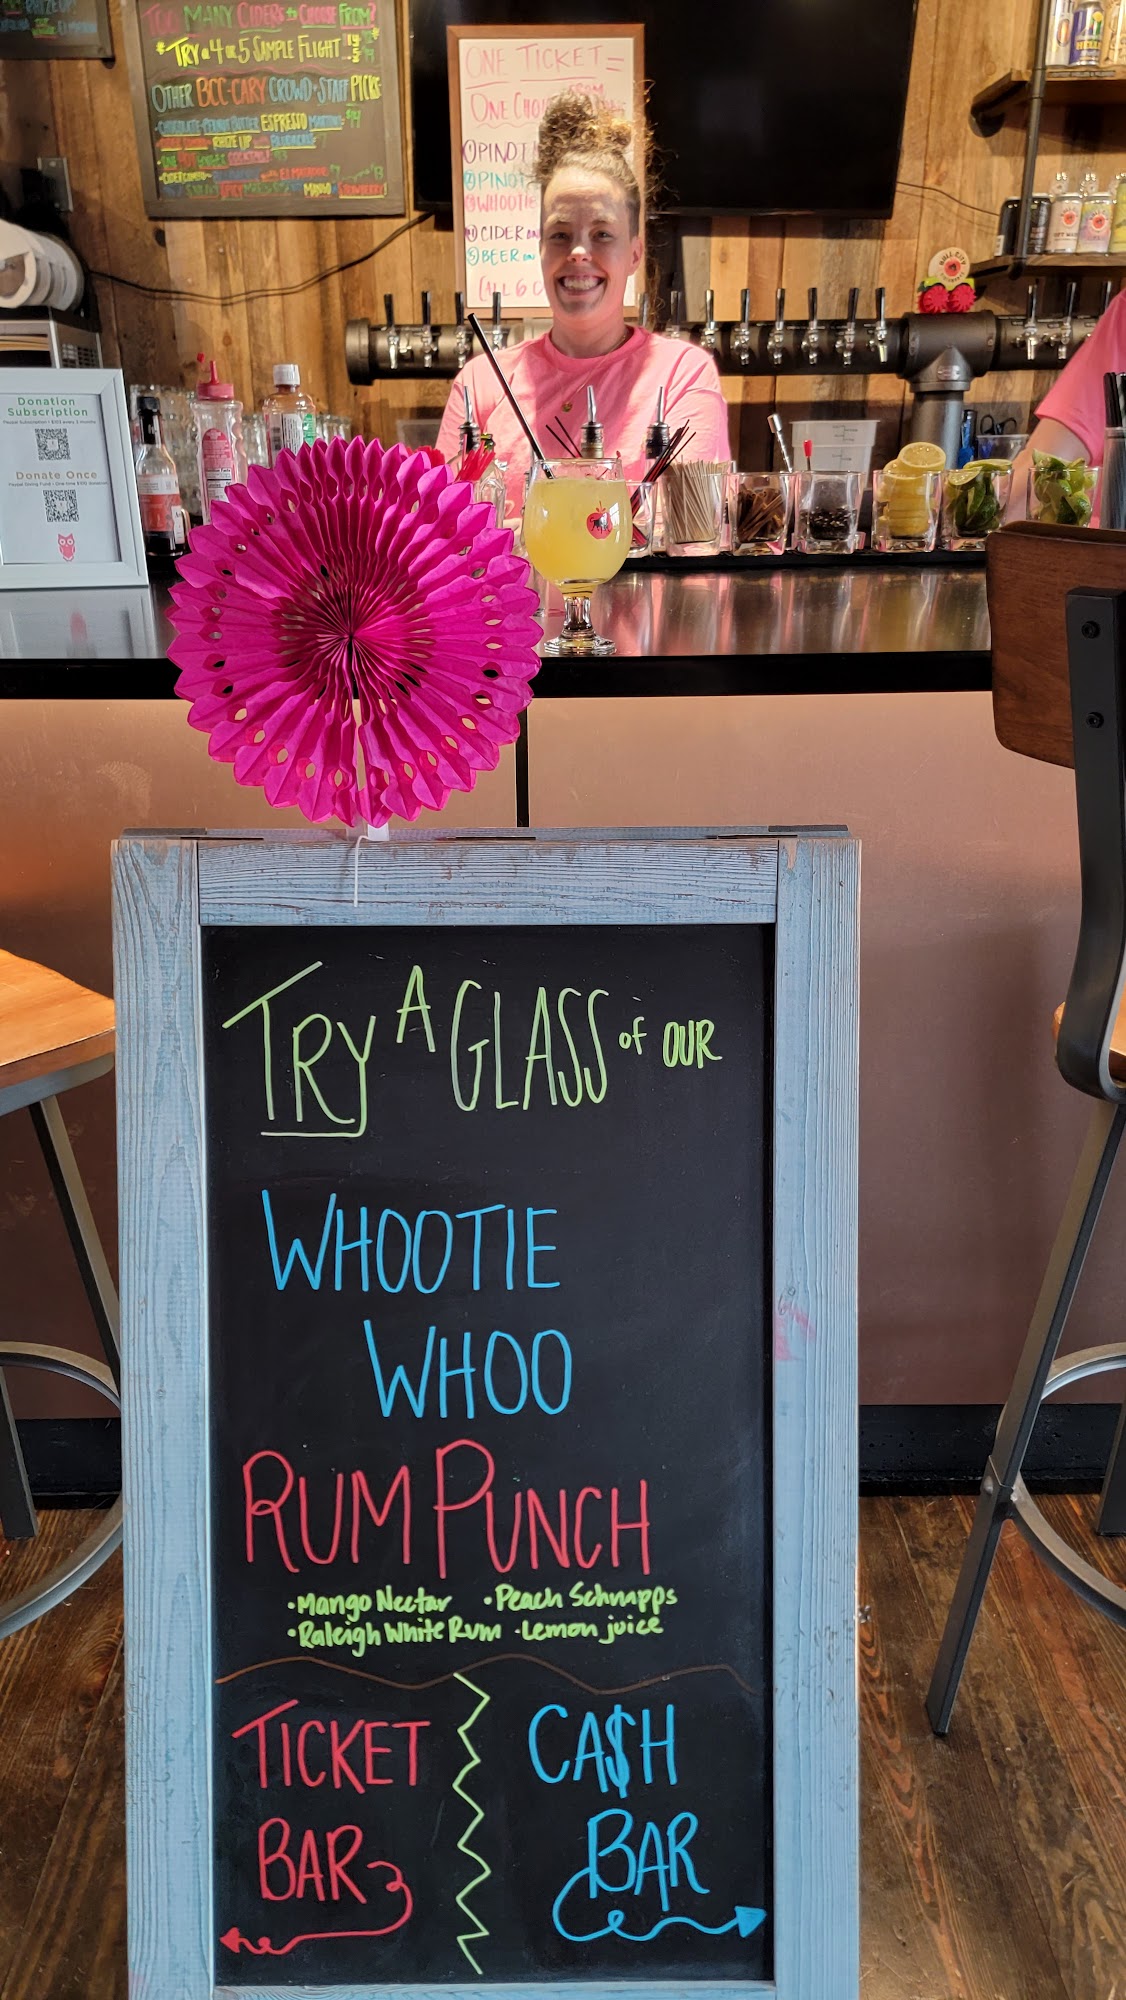 TOO MANY CIDERS to CHOOSE FROM?
TRY a 4 or 5 SAMPLE FLIGHT
OTHER BCC-CARY CROWD + STAFF PICKS
CHOCOLATE PEANUT BUTTER ESPRESSO
RHIZE UP
ONE TICKET =
ONE
PINOT
PINOT
WHOOTIE
CIDER on
BEER on
Donation
Subscription
Donate Once
BULL CITY
TRY A GLASS of OUR
WHOOTIE
WHOO
RUM PUNCH
• Mango Nectar • Peach Schnapps
• Raleigh White Rum • Lemon juice
TICKET CA$H
BAR BAR